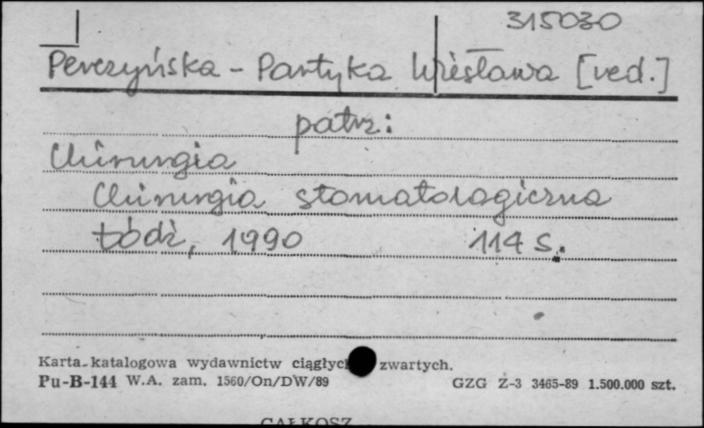 315030
Perczyńska - Partyka Wiesława [red.]
patrz:
Chirurgia
Chirurgia stomatologiczna
Łódź, 1990 114 s.
Karta katalogowa wydawnictw ciągłych zwartych.
Pu-B-144 W.A. zam. 1560/On/DW/89 GZG Z-3 3465-89 1.500.000 szt.
CAŁKOSZ